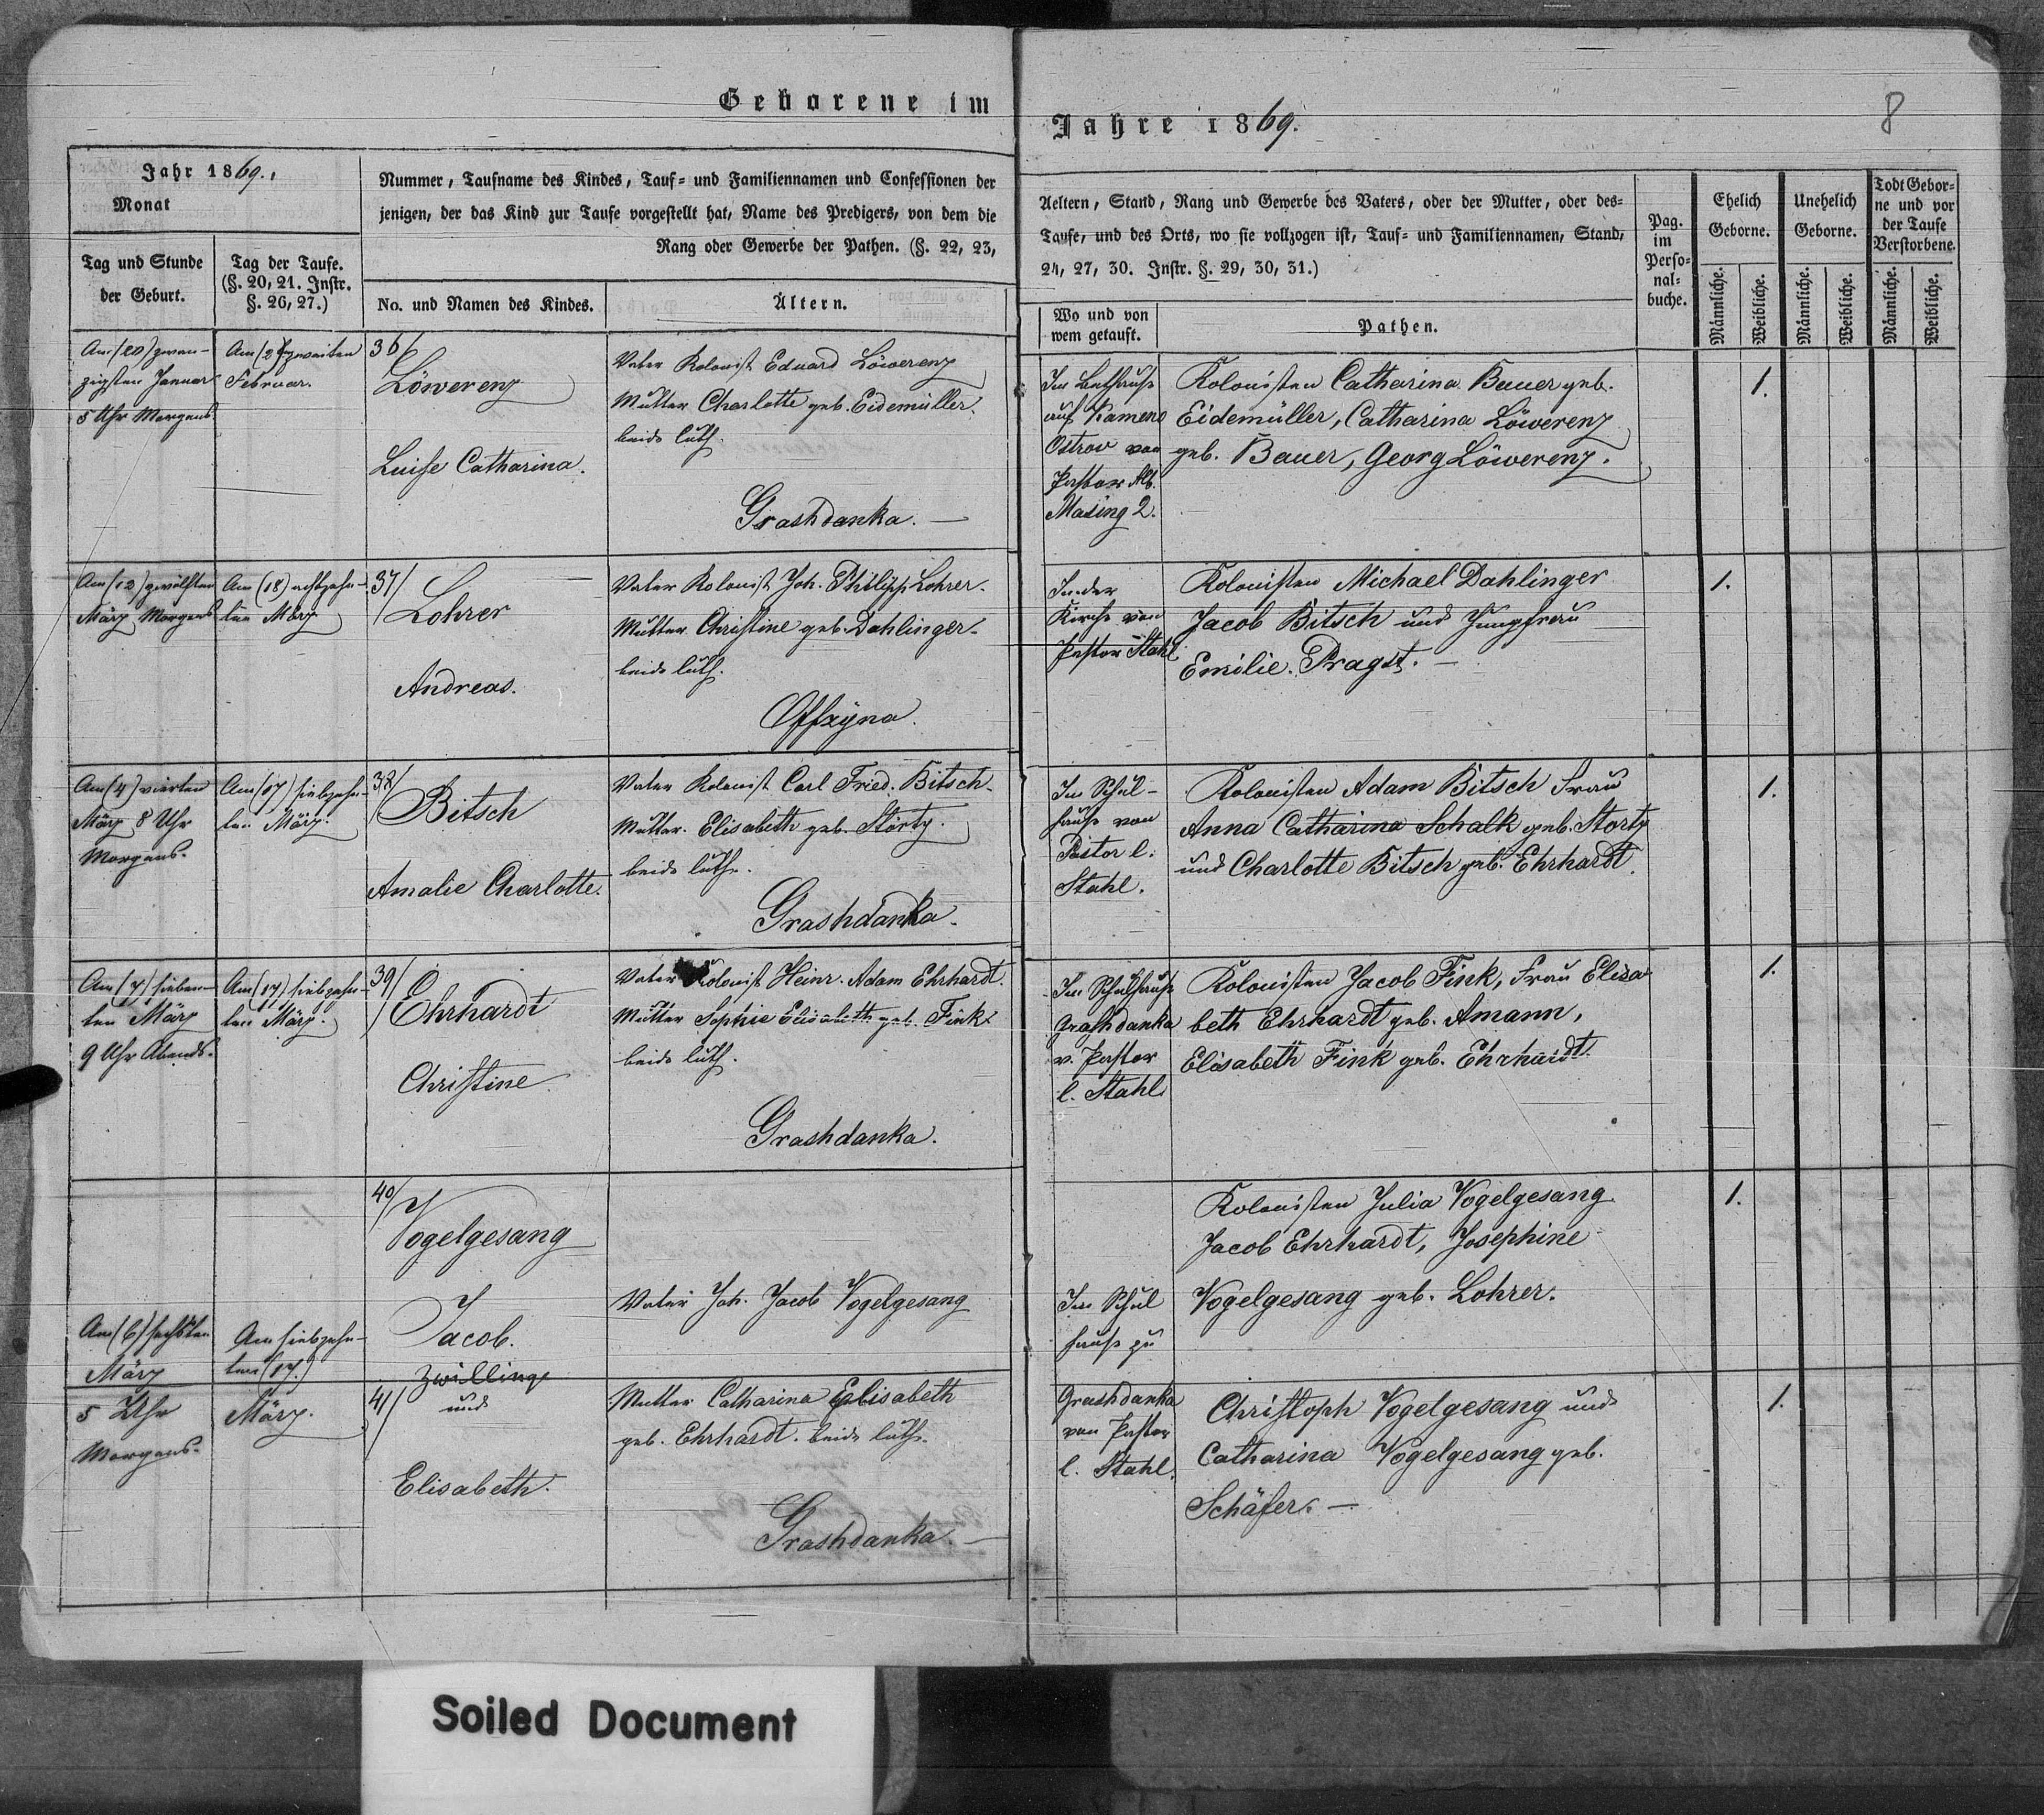 Geborene im
Jahre 1869.
8
Jahr 1869.
Monat
Tag und Stunde
der Geburt.
Tag der Taufe.
(§. 20, 21. Instr.
§. 26, 27.)
Nummer, Taufname des Kindes, Tauf= und Familiennamen und Confessionen der
jenigen, der das Kind zur Taufe vorgestellt hat, Name des Predigers, von dem die
Rang oder Gewerbe der Pathen. (§. 22, 23,
No. und Namen des Kindes.
Ältern.
Aeltern, Stand, Rang und Gewerbe des Vaters, oder der Mutter, oder des=
Taufe, und des Orts, wo sie vollzogen ist, Tauf= und Familiennamen, Stand,
24, 27, 30. Instr. §. 29, 30, 31.)
Wo und von
wem getauft.
Pathen.
Pag.
im
Perso=
nal=
buche.
Ehelich
Geborne.
Unehelich
Geborne.
Todt Gebor=
ne und vor
der Taufe
Verstorbene.
Männliche.
Weibliche.
Männliche.
Weibliche.
Männliche.
Weibliche.
Am (20) zwan-
zigsten Januar
5 Uhr Morgens
Am zweiten
Februar.
36/
Löwerenz
Luise Catharina.
Vater Kolonist Eduard Löwerenz
Mutter Charlotte geb. Eidemüller.
beide luth.
Grashdanka. —
Im Bethause
auf Kameno
Ostrov von
Pastor Alb.
Masing 2.
Kolonisten Catharina Bauer geb.
Eidemüller, Catharina Löwerenz
geb. Bauer, Georg Löwerenz.
1.
Am (12) zwölften
März Morgens
Am (18) achtzehn-
ten März
37/
Lohrer
Andreas.
Vater Kolonist Joh. Philipp Lohrer.
Mutter Christine geb. Dahlinger.
beide luth.
In der
Kirche von
Pastor Stahl
Kolonisten Michael Dahlinger
Jacob Bitsch und Jungfrau
Emilie Pragst. —
1.
Am (4) vierten
März 8 Uhr
Morgens.
Am (17) siebzehn-
ten März.
38/
Bitsch
Amalie Charlotte.
Vater Kolonist Carl Fried. Bitsch.
Mutter Elisabeth geb. Störtz.
beide luth.
Grashdanka.
Im Schul-
hause von
Pastor C.
Stahl.
Kolonisten Adam Bitsch Frau
Anna Catharina Schalk geb. Stortz
und Charlotte Bitsch geb. Ehrhardt.
1.
Am (7) sieben-
ten März
9 Uhr Abends.
Am (17) siebzehn-
ten März.
39/
Ehrhardt
Christine
Vater Kolonist Heinr. Adam Ehrhardt.
Mutter Sophie Elisabeth geb. Fink.
beide luth.
Grashdanka.
Im Schulhause
Grashdanka
v. Pastor
C. Stahl
Kolonisten Jacob Fink, Frau Elisa
beth Ehrhardt geb. Amann,
Elisabeth Fink geb. Ehrhardt.
1.
Am (6) sechsten
März
5 Uhr
Morgens.
Am siebzehn-
ten (17.)
März.
40/
Vogelgesang
Jacob.
Zwillinge
und
41/
Elisabeth.
Vater Joh. Jacob Vogelgesang
Mutter Catharina Elisabeth
geb. Ehrhardt. beide luth.
Grashdanka. —
Im Schul
hause zu
Grashdanka
von Pastor
C. Stahl.
Kolonisten Julia Vogelgesang
Jacob Ehrhardt, Josephine
Vogelgesang geb. Lohrer.
1.
Christoph Vogelgesang und
Catharina Vogelgesang geb.
Schäfer. —
1.
Soiled Document